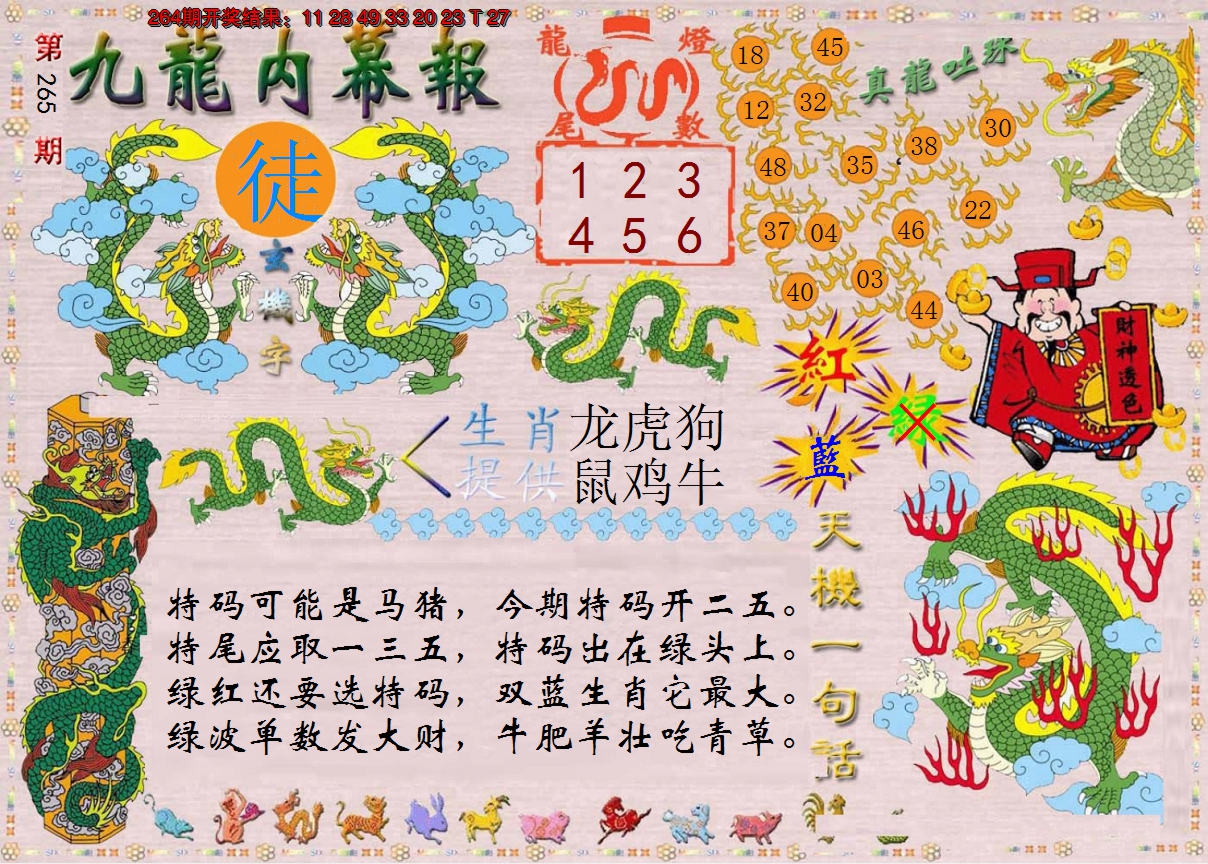 264期开奖结果：11 28 49 33 20 23 T 27
第265期
九龍内幕報
徒
玄機字
龍燈
尾數
1 2 3
4 5 6
真龍吐珠
18 45
12 32
48 35 38 30
37 04 46 22
40 03 44
紅
绿
藍
財神透色
生肖 龙虎狗
提供 鼠鸡牛
特码可能是马猪，今期特码开二五。
特尾应取一三五，特码出在绿头上。
绿红还要选特码，双蓝生肖它最大。
绿波单数发大财，牛肥羊壮吃青草。
天機一句話